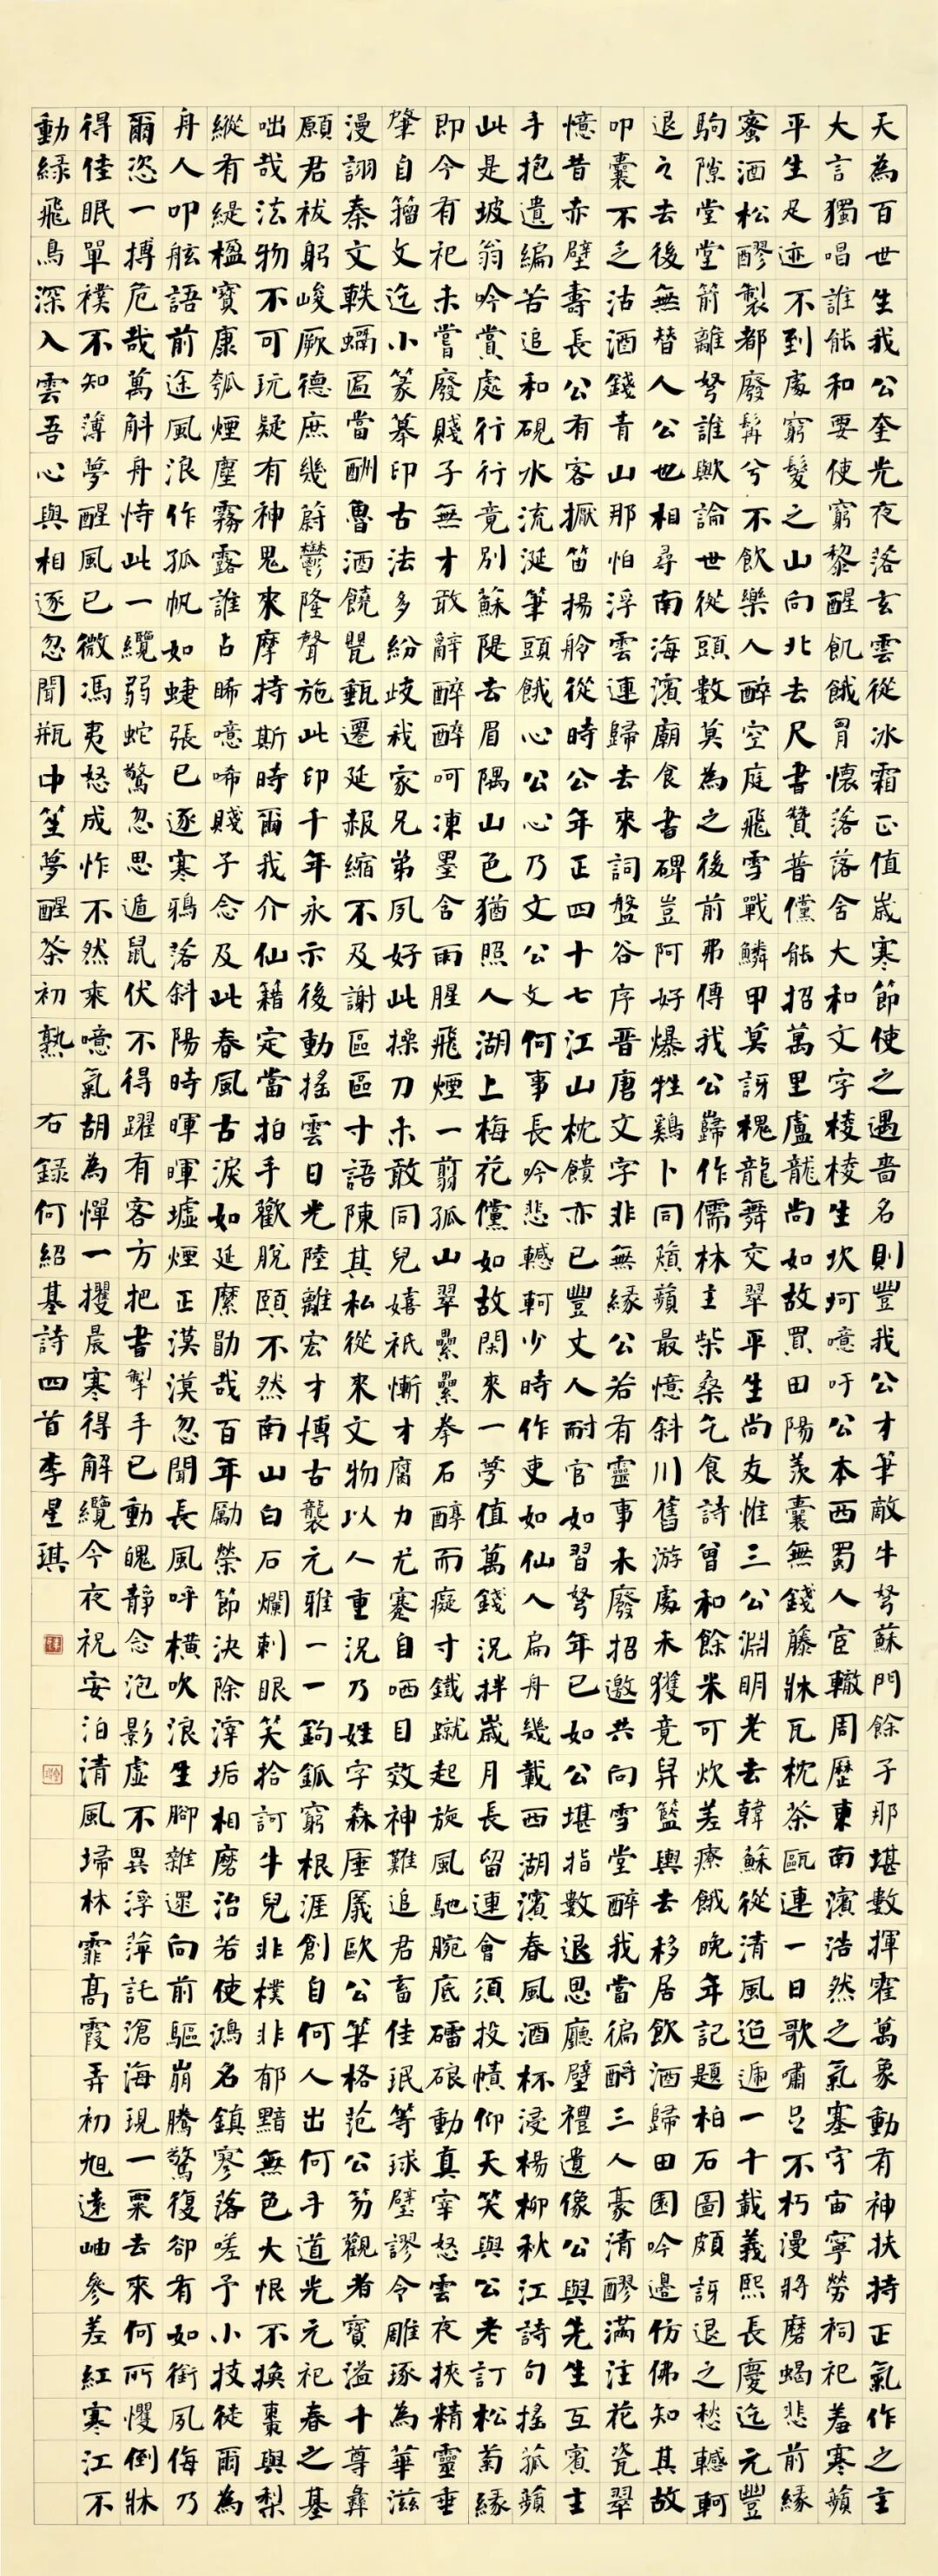 天為百世生我公奎光夜落玄雲從冰霜正值歲寒節使之遇嗇名則豐我公才筆敵牛弩蘇門餘子那堪數揮霍萬象動有神扶持正氣作之主
大言獨唱誰能和要使窮黎醒飢餓胃懷落落舍大和文字棱棱生坎坷噫吁公本西蜀人宦轍周歷東南濱浩然之氣塞宇宙寧勞祠祀羞寒蘋
平生足迹不到處窮髮之山向北去尺書贊普儻能招萬里盧龍尚如故買田陽羨囊無錢藤牀瓦枕茶甌連一日歌嘯呂不朽漫將磨蝎悲前緣
蜜酒松醪製都廢髯兮不飲樂人醉空庭飛雪戰鱗甲莫訝槐龍舞交翠平生尚友惟三公淵明老去韓蘇從清風迢遞一千載義熙長慶迄元豐
駒隙堂堂箭離弩誰歟論世從頭數莫為之後前弗傳我公歸作儒林主柴桑乞食詩曾和餘米可炊差療餓晚年記題柏石圖頗訝退之愁轗軻
退之去後無替人公也相尋南海濱廟食書碑豈阿好爆牲雞卜同薠蘋最憶斜川舊游處未獲竟舁籃輿去移居飲酒歸田園吟邊仿佛知其故
叩囊不乏沽酒錢青山那怕浮雲連歸去來詞盤谷序晉唐文字非無緣公若有靈事未廢招邀共向雪堂醉我當徧酹三人豪清醪滿注花瓷翠
憶昔赤壁壽長公有客擫笛揚舲從時公年正四十七江山枕饋亦已豐丈人耐官如習弩年已如公堪指數退思廳壁禮遺像公與先生互賓主
手抱遺編苦追和硯水流涎筆頭餓心公心乃文公文何事長吟悲轗軻少時作吏如仙人扁舟幾載西湖濱春風酒杯浸楊柳秋江詩句搖菰蘋
此是坡翁吟賞處行行竟別蘇隄去眉隅山色猶照人湖上梅花儻如故閑來一夢值萬錢況拌歲月長留連會須投幘仰天笑與公老訂松菊緣
即今有祀未嘗廢賤子無才敢辭醉醉呵凍墨含雨腥飛煙一翦孤山翠纍纍拳石醇而癡寸鐵蹴起旋風馳腕底礌硠動真宰怒雲夜挾精靈垂
肇自籀文迄小篆摹印古法多紛歧我家兄弟夙好此操刀未敢同兒嬉祇慚才腐力尤蹇自哂目效神難追君畜佳珉等球璧謬令雕琢為華滋
漫詡秦文軼螭匾當酬魯酒饒甖甀遷延赧縮不及謝區區寸語陳其私從來文物以人重況乃姓字森厜㕒歐公筆格范公笏觀者寶溢十尊彝
願君袚躬峻厥德庶幾蔚鬱隆聲施此印千年永示後動搖雲日光陸離宏才博古襲元雅一一鉤鈲窮根涯創自何人出何手道光元祀春之基
咄哉法物不可玩疑有神鬼來摩持斯時爾我介仙籍定當拍手歡脫頤不然南山白石爛刺眼笑拾訶牛兒非樸非郁黯無色大恨不換棗與梨
縱有緹楹寶康瓠煙塵霧露誰占晞噫唏賤子念及此春風古淚如延縻勖哉百年勵榮節決除滓垢相磨治若使鴻名鎮寥落嗟予小技徒爾為
舟人叩舷語前途風浪作孤帆如蜨張已逐寒鴉落斜陽時暉暉墟煙正漠漠忽聞長風呼橫吹浪生腳雜遝向前驅崩騰驚復卻有如銜夙侮乃
爾恣一搏危哉萬斛舟恃此一纜弱蛇驚忽思遁鼠伏不得躍有客方把書掣手已動魄靜念泡影虛不異浮萍託滄海現一粟去來何所懼倒牀
得佳眠單襆不知薄夢醒風已微馮夷怒成怍不然來噫氣胡為憚一攫晨寒得解纜今夜祝安泊清風埽林霏高霞弄初旭遠岫參差紅寒江不
動綠飛鳥深入雲吾心與相逐忽聞瓶中笙夢醒茶初熟 右錄何紹基詩四首李星琪